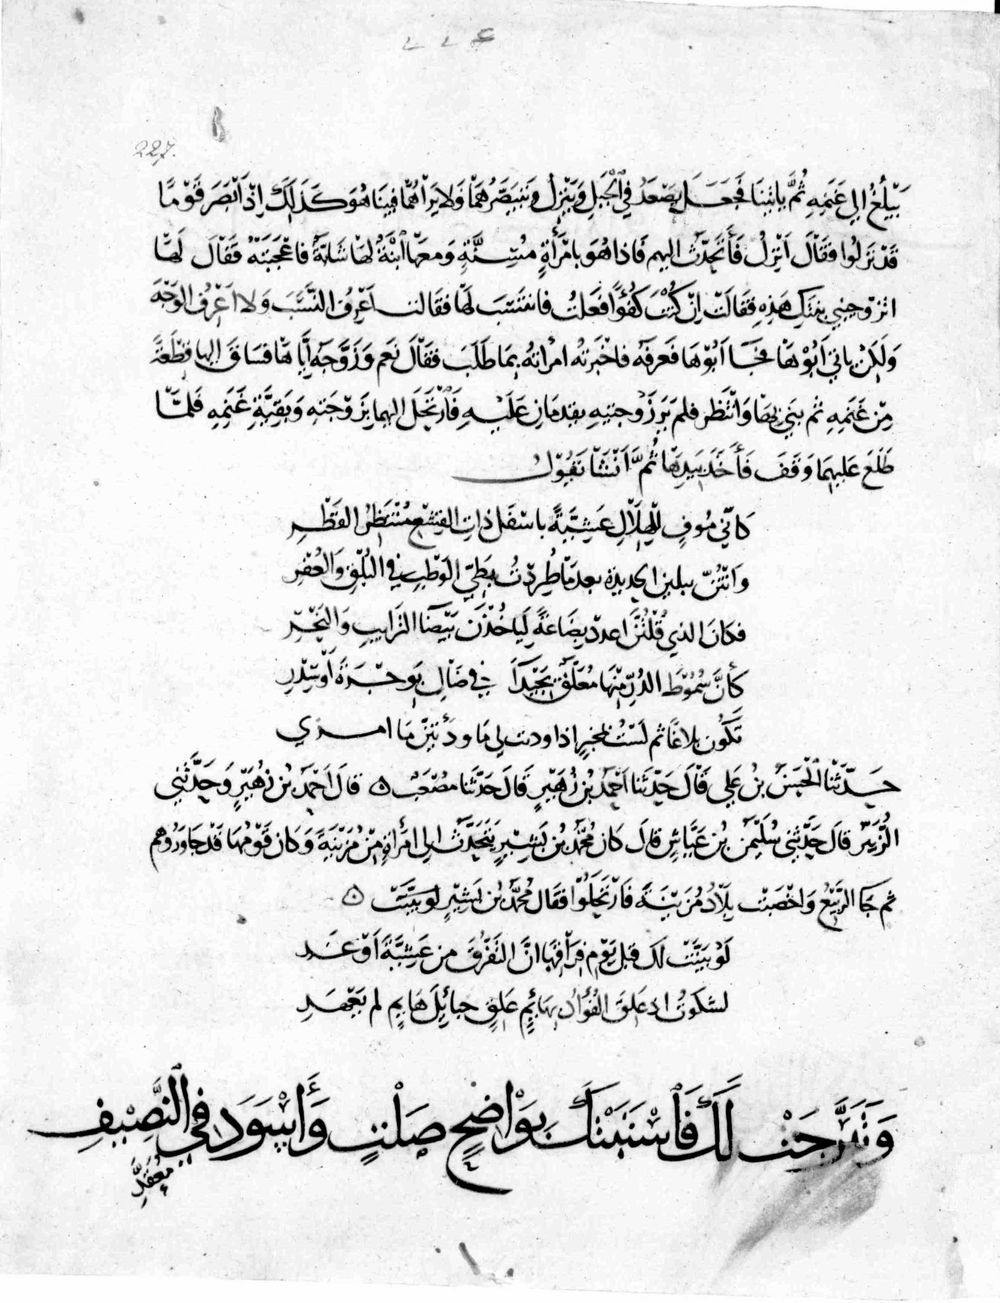 ٢٢٧
227.
يَبْلُغُ الى غَنَمِهِ ثُمَّ ياتينَا فَجَعَلَ يَصْعَدُ في الجَبَلِ وَيَنْزِل وَيَتَبَصَّرُهُمَا وَلا يَرَاهُمَا فبينَا هُوَ كَذَلِكَ اِذْ اَبْصَرَ قَوْمًا
قَدْ نَزَلُوا فقَالَ اَنْزِلُ فَأَتَحَدَّثُ اليهم فَاذا هُوَ بامْرَأَةٍ مُسِنَّةٍ وَمعَهَا اْبْنَةٌ لهَا شَابَّةٌ فاعْجَبَتْه فقَالَ لهَا
اتزَوجيني بنتكِ هَذِهِ فقالَتْ اِنْ كُنْتَ كُفُؤًا فَعَلْتُ فانتَسَبَ لهَا فقالت اَعْرِفُ النَّسَبَ وَلا اَعْرِفُ الوَجْهَ
وَلكِنْ ياتي اَبُوْهَا فجَا ابُوْهَا فَعَرفَه فاخْبَرَتهُ امْرَاتهُ بمَا طَلَبَ فقَالَ نعَم وَزَوَّجَهُ اِيَّاهَا فسَاقَ اليها قِطْعَةً
مِنْ غَنَمِهِ ثم بَنَى بهَا وَانْتَظَر فلم يَرَ زَوْجَتَيْهِ يقدمَانِ عَلَيْهِ فَارْتَحَلَ اليهما بزَوْجَتِه وَبَقِيَّةِ غَنَمِهِ فلمَّا
طَلَعَ عليهمَا وَقَفَ فَأَخَذَ بيَدِهَا ثُمَّ اَنْشَأ يَقُوْل
كَانّي مُوفٍ للهِلَالِ عَشِيَّةً باسْفَلِ ذاتِ القِشْعِ مُنْتَظِرُ القَطْرِ
وَانْتُنَّ يلبسن الجديدة بعدَ مَا طُرِدْتُ بطَيّ الوَطْبِ في البُلْقِ وَالعُفْرِ
فكانَ الذي قُلْتُنَّ اعدد بضَاعَةً لِيَاخُذْنَ بَيْضَا الترَايبِ وَالنَّحْرِ
كَأَنَّ سُمُوْطَ الدُّرِّ مِنْهَا مُعَلَّقٌ بجَيْدَآ في ضَالٍ بوَجْرَةَ اَوْ سِدْرِ
تَكُوْن بلاغًا ثم لَسْتُ بمُخْبرٍ اذا ودِيت لي مَا ودَيْتُنَّ مَا امْرِي
حَدّثَنا الحَسَنُ بنُ عَلي قَالَ حَدّثنا اَحْمَدُ بْن زُهَيْرٍ قَالَ حَدّثنَا مصْعَبٌ ه قالَ اَحْمَدُ بن زهَيْرٍ وَحَدَّثني
الزُبيرُ قالَ حَدَّثني سُلَيْمٰنُ بْن عَيَّاشٍ قالَ كانَ مُحَمَّدُ بْن بَشِيْرٍ يَتَحَدَّثُ الى امْرَأَةٍ مِنْ مُزَيْنَةَ وَكانَ قَوْمُهَا قَدْ جَاوَرُوهم
ثم جَا الرَّبيْعُ وَاخْصَبَتْ بلادُ مُزَيْنَةَ فَارْتَحَلُوا فقَال مُحَمَّدُ بْن بَشِيْرٍ لو بَيَّنَتْ ه
لَوْ بَيَّنَتْ لك قبلَ يَوْمِ فِرَاقِهَا انَّ التَفَرُّقَ مِنْ عَشِيَّةَ اَوْ غَدِ
لشكوْتَ اذ عَلِقَ الفُؤَادُ بهَايمٍ عَلِقٍ حبائِلَ هَايمٍ لم يَعْهَدِ
وَتَبَرَّجَتْ لَكَ فَاسْتَبَتْكَ بِوَاضِحٍ صَلْتٍ وَأَسْوَدَ فِي النَّصِيْفِ
مُعَقَّدِ